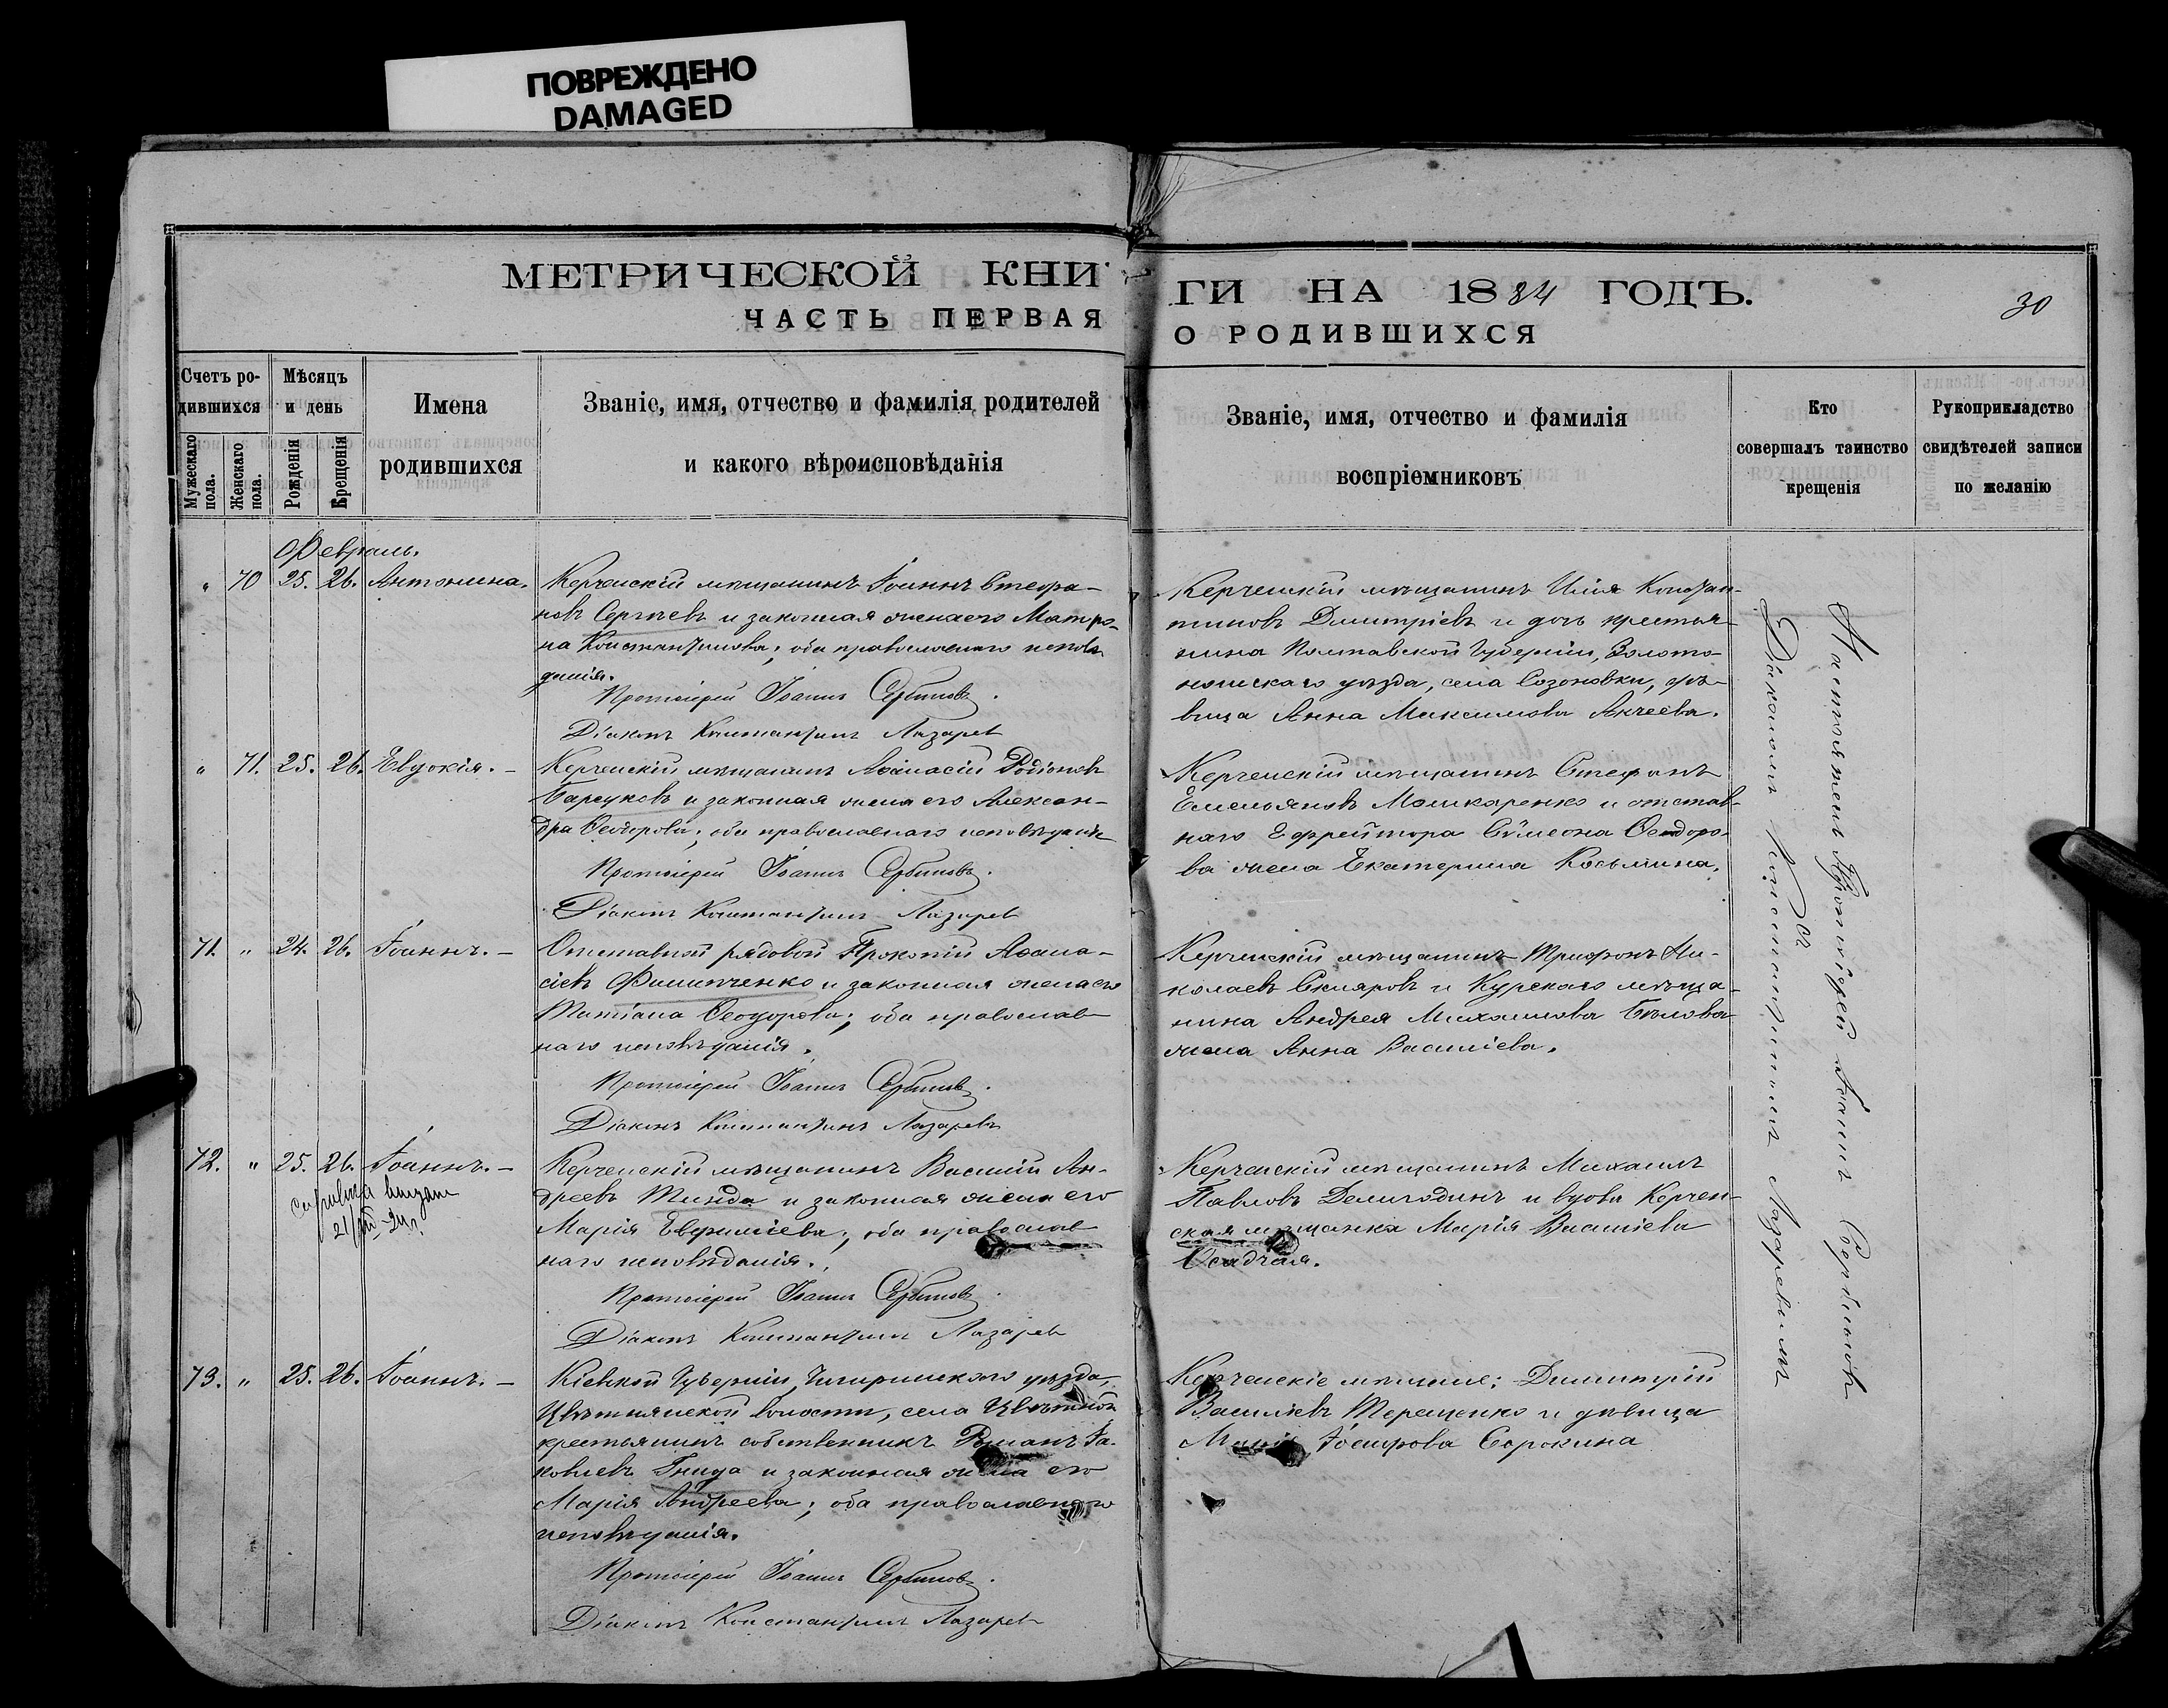 ПОВРЕЖДЕНО
DAMAGED
МЕТРИЧЕСКОЙ КНИ
ЧАСТЬ ПЕРВАЯ
ГИ НА 1884 ГОДЪ.
О РОДИВШИХСЯ
30
Счетъ ро-
дившихся
Мужескаго пола.
Женскаго пола.
Мѣсяцъ
и день
Рожденія
Крещенія
Имена
родившихся
Званіе, имя, отчество и фамилія родителей
и какого вѣроисповѣданія
Званіе, имя, отчество и фамилія
воспріемниковъ
Кто
совершалъ таинство
крещенія
Рукоприкладство
свидѣтелей записи
по желанію
Февраль.
" 70 25. 26. Антонина.
Керченскій мѣщанинъ Іоаннъ Стефа-
новъ Сергѣевъ и законная жена его Матро-
на Константинова; оба православнаго исповѣ
данія.
Протоіерей Іоаннъ Сербиновъ.
Діаконъ Константинъ Лазаревъ
Керченскій мѣщанинъ Илія Констан-
тиновъ Димитріевъ и дочь крестья-
нина Полтавской Губерніи, Золото-
ношскаго уѣзда, села Созоновки, дѣ-
вица Анна Максимова Акчеева.
" 71. 25. 26. Евдокія. -
Керченскій мѣщанинъ Аѳанасій Родіоновъ
Барсуковъ и законная жена его Алексан-
дра Ѳеодорова; оба православнаго исповѣданія
Протоіерей Іоаннъ Сербиновъ.
Діаконъ Константинъ Лазаревъ
Керченскій мѣщанинъ Стефанъ
Емельяновъ Мошкаренко и отстав-
наго Ефрейтора Сѵмеона Ѳеодоро-
ва жена Екатерина Косьмина.
71. " 24. 26. Іоаннъ. -
Отставной рядовой Прокопій Аѳана-
сіевъ Филипченко и законная жена его
Татіана Ѳеодорова; оба православ-
наго исповѣданія.
Протоіерей Іоаннъ Сербиновъ.
Діаконъ Константинъ Лазаревъ
Керченскій мѣщанинъ Трифонъ Ни-
колаевъ Скляровъ и Курскаго мѣща-
нина Андрея Михаилова Бѣлова
жена Анна Василіева.
72. " 25. 26. Іоаннъ. -
Керченскій мѣщанинъ Василій Ан-
дреевъ Тинда и законная жена его
Марія Евфиміева; оба православ-
наго исповѣданія.
Протоіерей Іоаннъ Сербиновъ.
Діаконъ Константинъ Лазаревъ
Керченскій мѣщанинъ Михаилъ
Павловъ Делигодинъ и вдова Керчен-
ская мѣщанка Марія Василіева
Осадчая.
73. " 25. 26. Іоаннъ. -
Кіевской Губерніи, Чигиринскаго уѣзда
Цвѣтнянской волости, села Цвѣтной
крестьянинъ собственникъ Романъ Іа-
ковлевъ Гнида и законная жена его
Марія Андреева; оба православнаго
исповѣданія.
Протоіерей Іоаннъ Сербиновъ.
Діаконъ Константинъ Лазаревъ
Керченскіе мѣщане: Димитрій
Василіевъ Терещенко и дѣвица
Марія Іосифова Сорокина
Настоятель Протоіерей Іоаннъ Сербиновъ
съ
Діакономъ Константиномъ Лазаревымъ